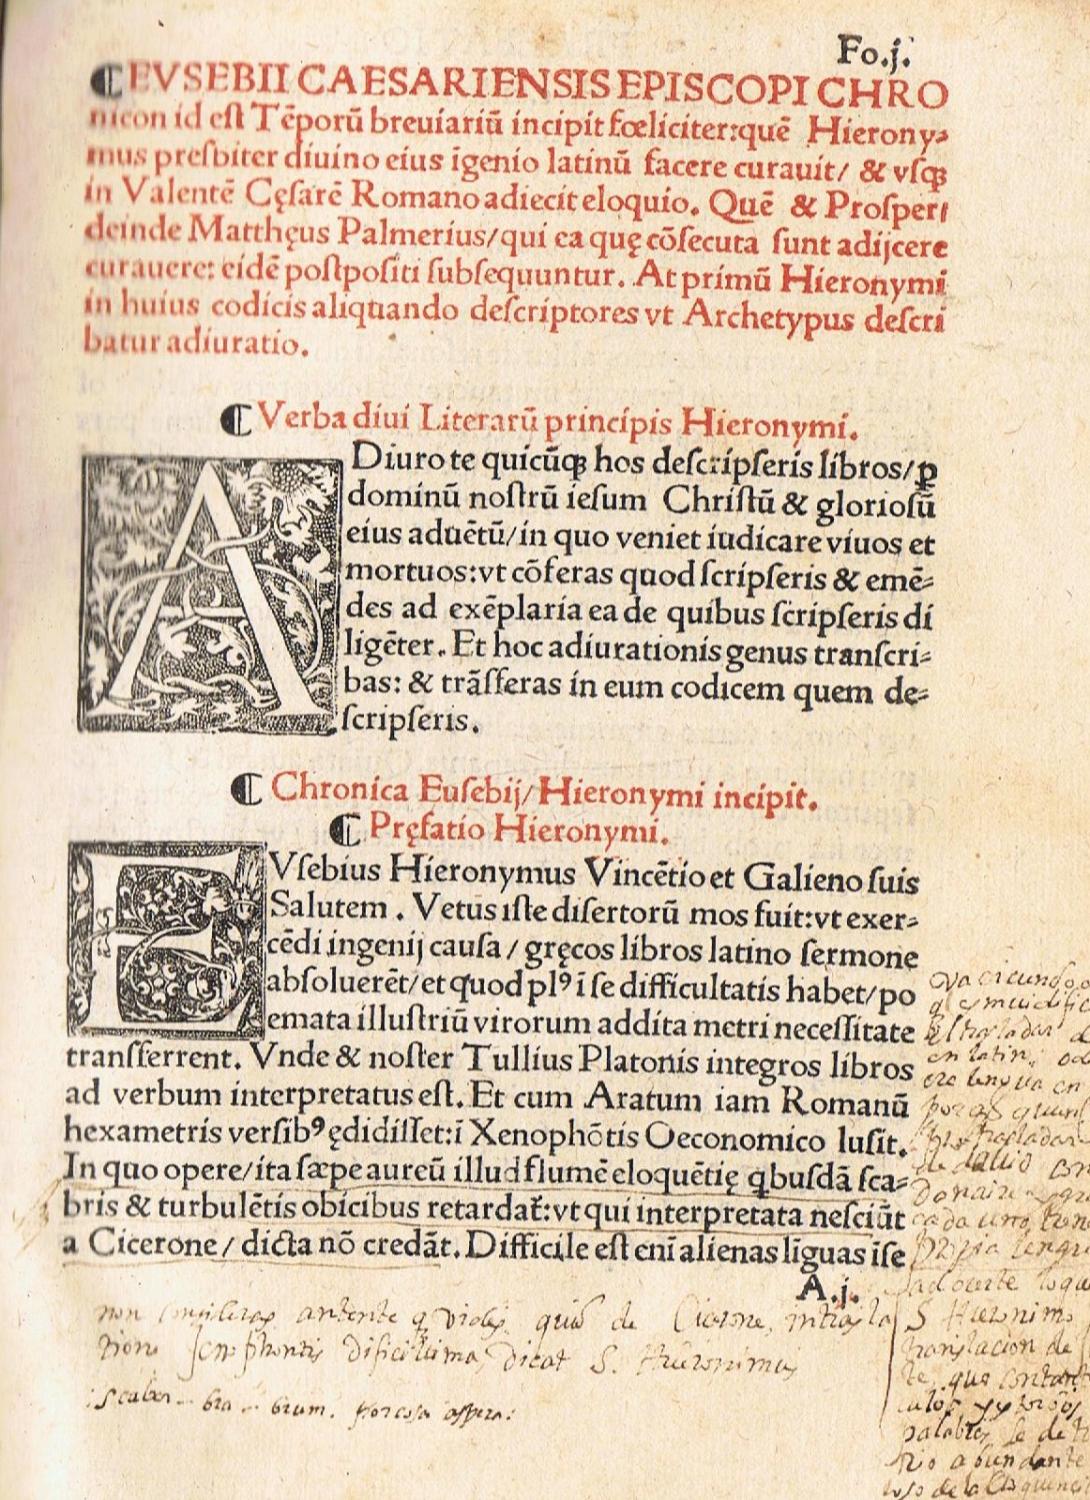 Fo.j.
EVSEBII CAESARIENSIS EPISCOPI CHRO
nicon id eſt Tēporū breuiariū incipit fœliciter:quē Hierony⸗
mus preſbiter diuino eius īgenio latinū facere curauit/ & vſqꝫ
in Valentē Cęſarē Romano adiecit eloquio. Quē & Proſperı
deinde Matthęus Palmerius/qui ea quę cōſecuta ſunt adijcere
curauere: eidē poſtpoſiti ſubſequuntur. At primū Hieronymi
in huius codicis aliquando deſcriptores vt Archetypus deſcri
batur adiuratio.
Verba diui Literarū principis Hieronymi.
ADiuro te quicūqꝫ hos deſcripſeris libros/ꝑ
dominū noſtrū ieſum Chriſtū & glorioſū
eius aduētū/in quo veniet iudicare viuos et
mortuos:vt cōferas quod ſcripſeris & emē⸗
des ad exēplaria ea de quibus ſcripſeris di
ligēter. Et hoc adiurationis genus tranſcri⸗
bas: & trāſferas in eum codicem quem de⸗
ſcripſeris.
Chronica Euſebij/Hieronymi incipit.
Pręfatio Hieronymi.
EVſebius Hieronymus Vincētio et Galieno ſuis
Salutem. Vetus iſte diſertorū mos fuit:vt exer⸗
cēdi ingenij cauſa/ gręcos libros latino ſermone
abſoluerēt/et quod plꝰ ī ſe difficultatis habet/po
emata illuſtriū virorum addita metri neceſſitate
tranſferrent. Vnde & noſter Tullius Platonis integros libros
ad verbum interpretatus eſt. Et cum Aratum iam Romanū
hexametris verſibꝰ ędidiſſet:ī Xenophōtis Oeconomico luſit.
In quo opere/ita ſæpe aureū illud flumē eloquētię qbuſdā ſca⸗
bris & turbulētis obicibus retardat̄:vt qui interpretata neſciūt
a Cicerone/ dicta nō credāt. Difficile eſt enī alienas līguas īſe
A.j.
non antente q de Cicerone
dificilima dicat S. Hieronimus
scaber - bra - brum. aspera:
en latin
S Hieronimo
translacion de
abundante